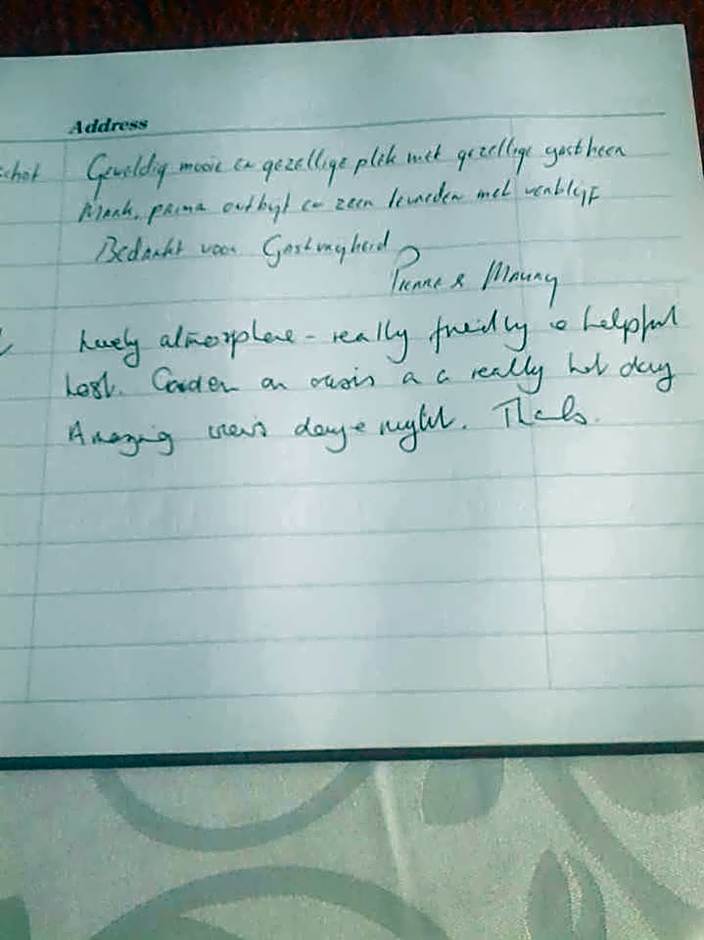 Address
Geweldig mooie en gezellige plek met gezellige gastheer
Mark, prima ontbijt en zeer tevreden met verblijf
Bedankt voor Gastvrijheid
&
Lovely atmosphere - really friendly & helpful
host. Garden an oasis on a really hot day
Amazing views day & night. Thanks.